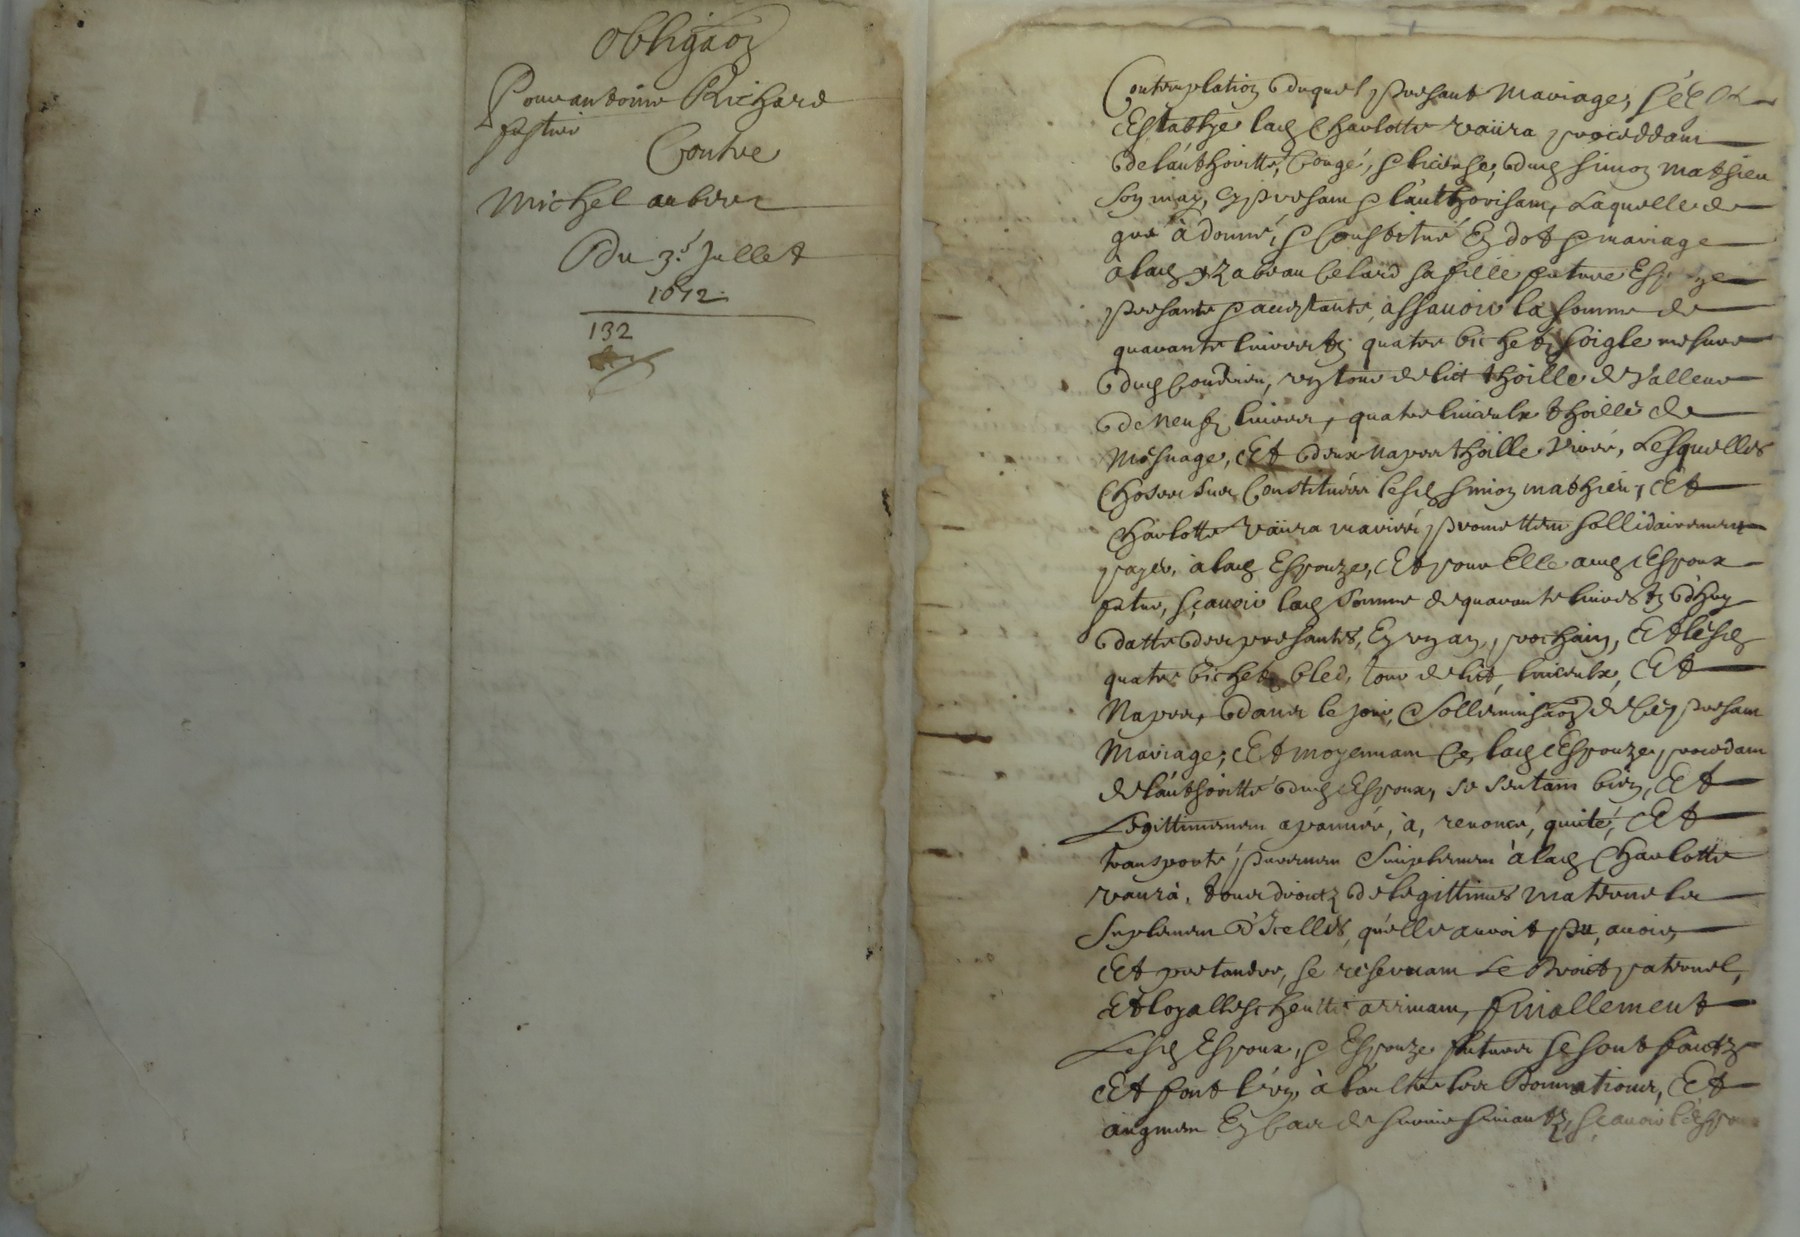 Obligaõn
Pour antoine Richard
Contre
Michel auber
Du 3e Jullet
1612.
132
Contemplation duquel presant Mariage, s'est
Establye lad Charlotte vaüra proceddant
de l'authoritté, Congé, & licience, dud Simon Mathieu
Son mary, cy presant & l'authorisant, Laquelle de
gré à donné, & Constitué En dot & mariage
à lad Yzabeau Celard sa fille future Espouze
presante & aceptante, assavoir la somme de
quarante livres tz quatre bichetz soigle mesure
dud Condrieu, ung tour de lict thoille de Valleur
de Neufz livres, quatre linceulx thoille de
Mesnage, Et deux Napes thoille Vivré, Lesquelles
Choses sus Constituées lesd Simon mathieu, Et
Charlotte Vaüra mariés promettent sollidairement
payer, à lad Espouze, Et pour Elle aud Espoux
futur, sçavoir lad Somme de quarante livres tz d'huy
datte des presantes, En ung an, prochain, Et lesd
quatre bichetz bled, tour de lict, linceulx, Et
Napes, dans le jour, Sollemnisaõn de Cey presant
Mariage; Et moyennant Ce, lad Espouze, proceddant
de l'authoritté dud Espoux, se sentant bien, Et
Legittimement apannée, à, renoncé, quité, Et
transporté, purement Simplement à lad Charlotte
vaurà, tous droictz de legittimes maternelles
Suplement d'Icelles, qu'elle auroit pu, avoir,
Et pretandre, se reservant Le Droict paternel,
Et loyalle scheutte arrivant, finallement
Lesd Espoux, & Espouze futurs se sont faictz
Et font l'ung à l'aultre les Donnations, Et
augment En Cas de survie suivantz, sçavoir l'Espoux